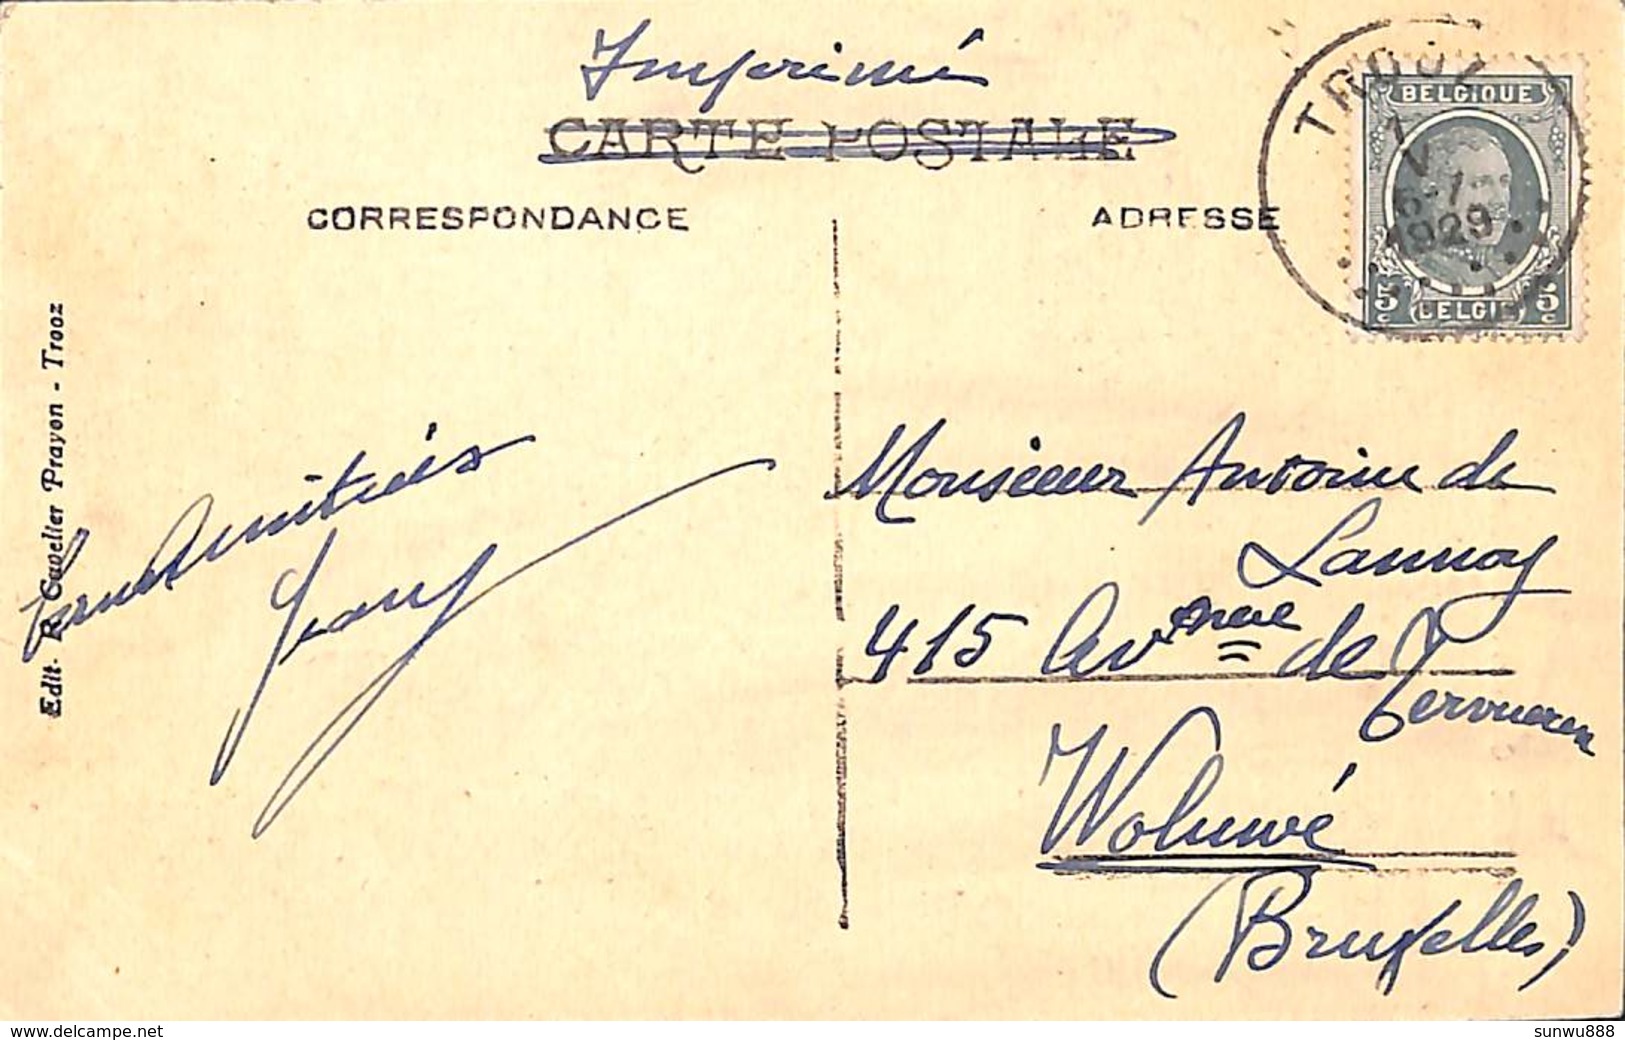 Imprimé
CARTE POSTALE
CORRESPONDANCE
ADRESSE
TROOZ
1
V
6-1
1929
BELGIQUE
5c BELGIË 5c
Edit. R. Gavelier Prayon - Trooz
Amitiés
Monsieur Antoine de
Lannoy
415 Avenue de Tervueren
Woluwé
(Bruxelles)
www.delcampe.net
sunwu888